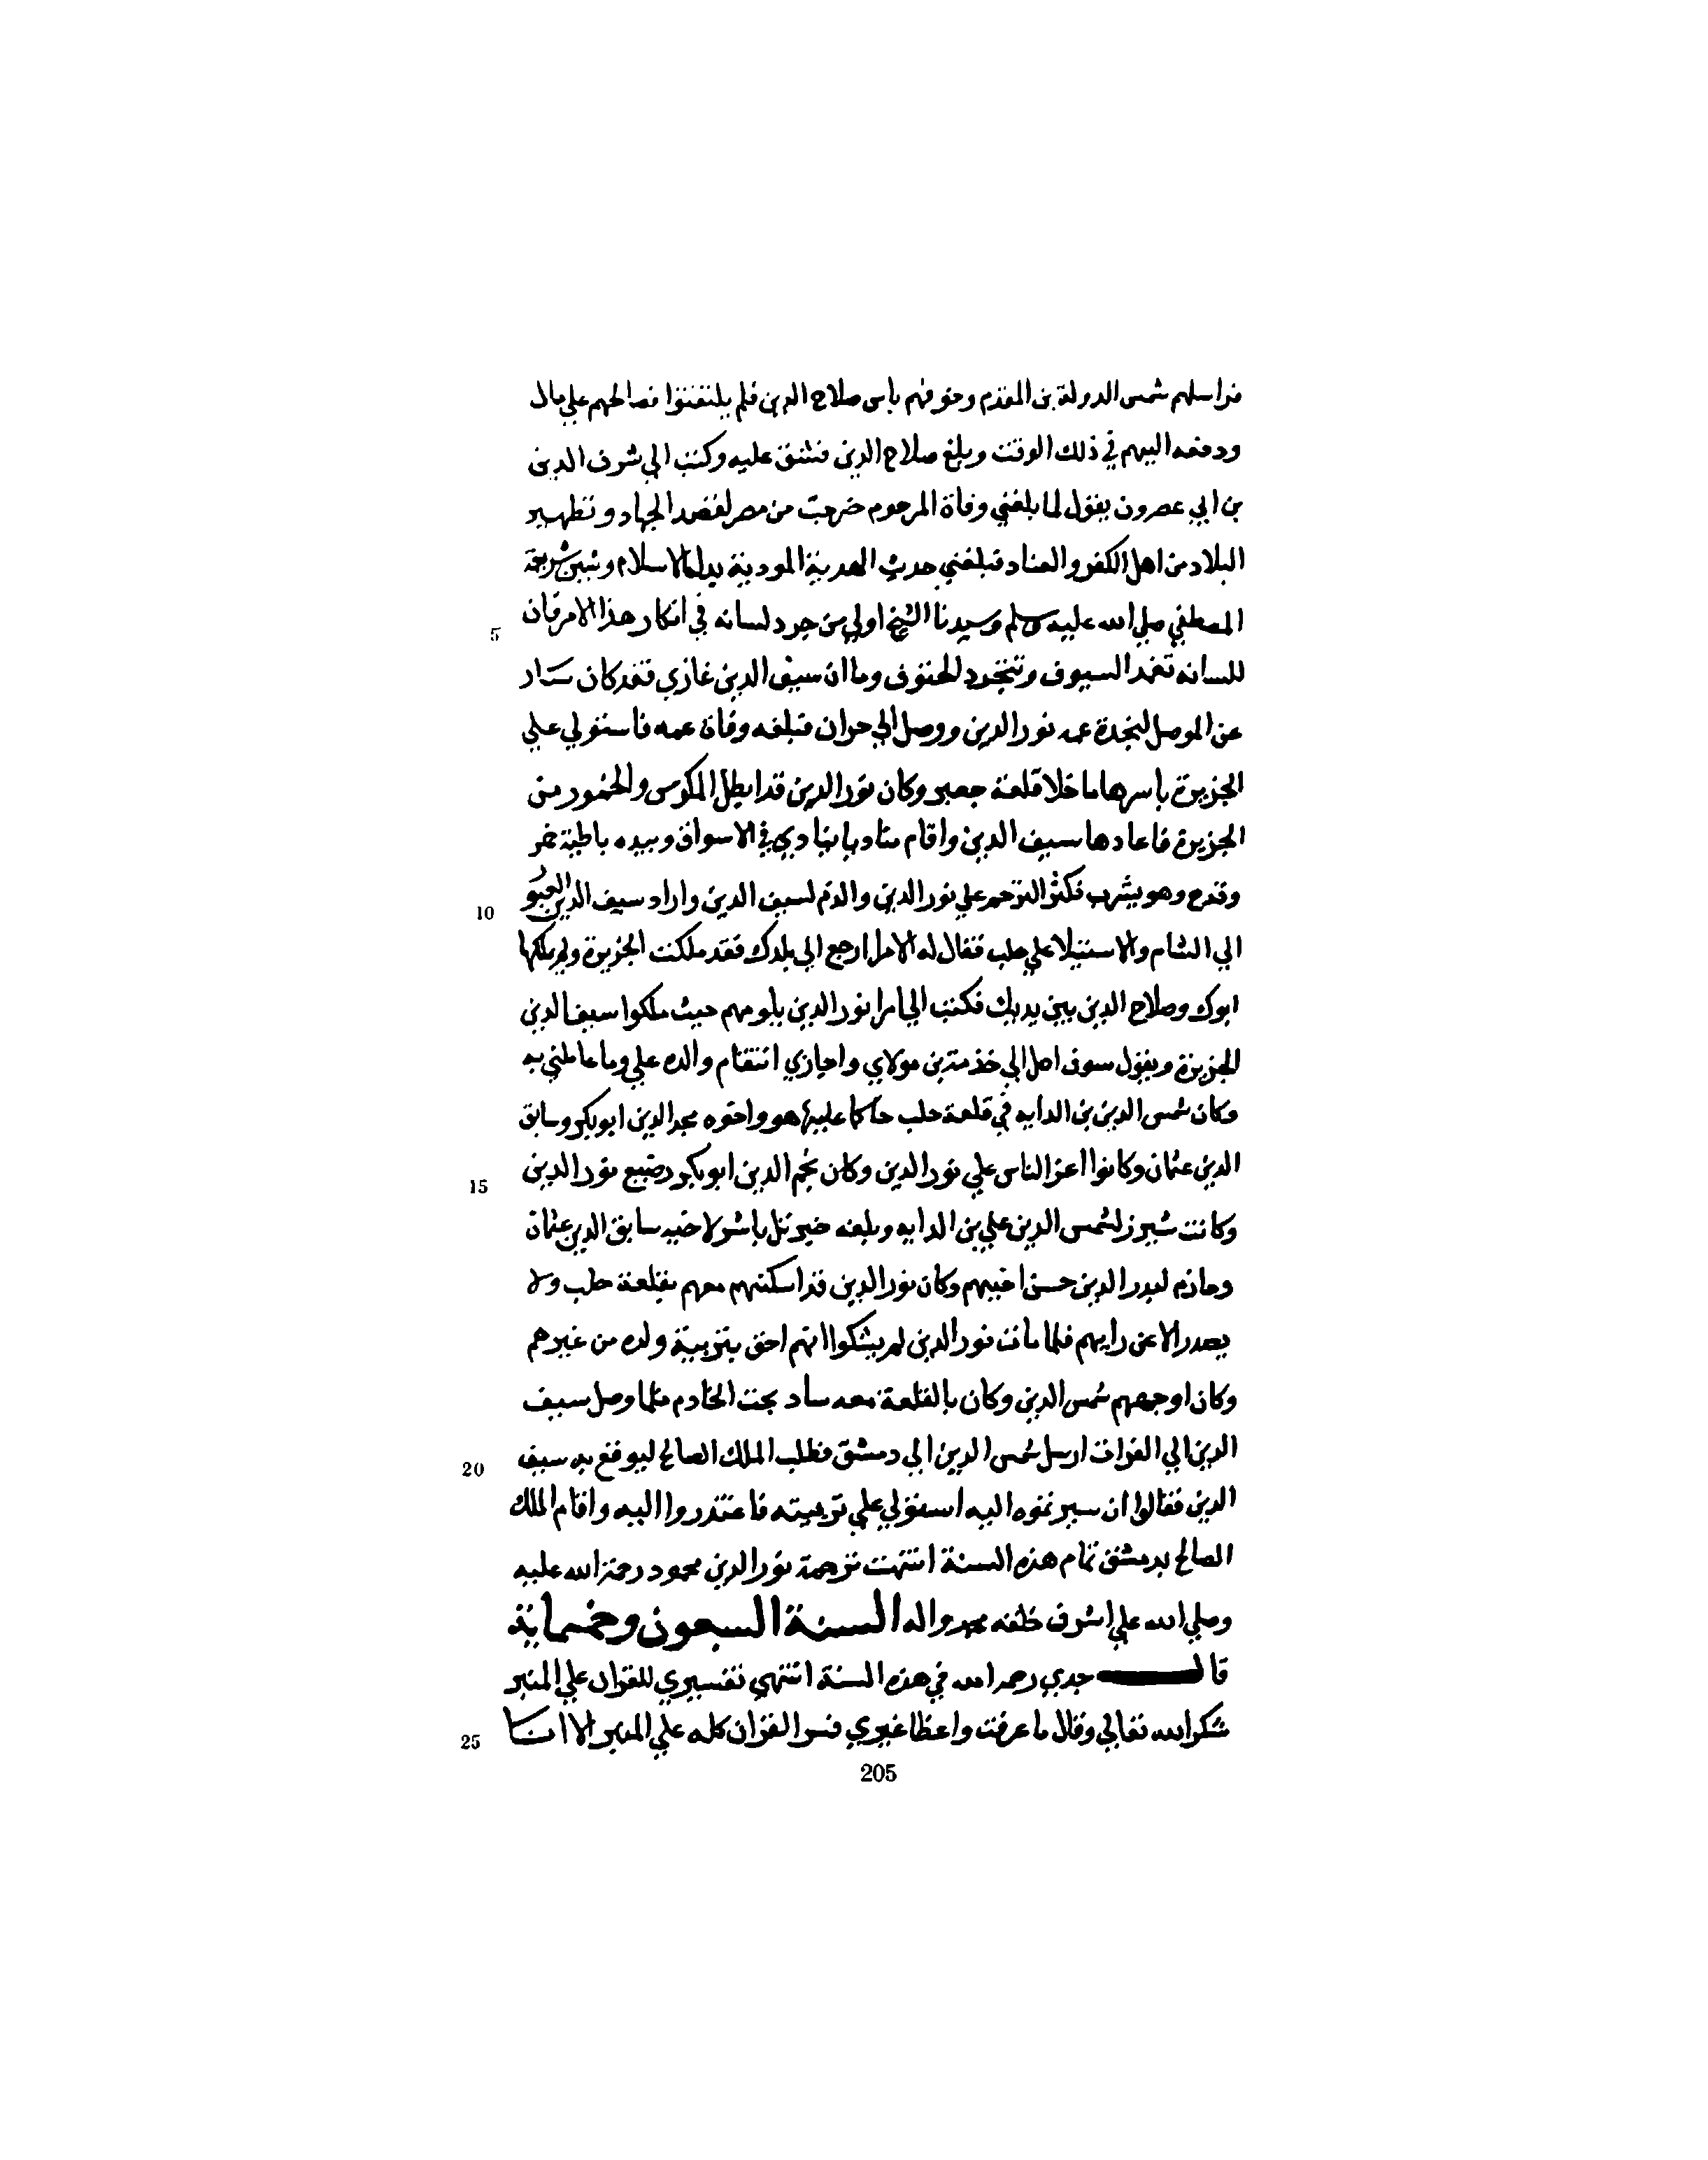 فراسلهم شمس الدولة بن المقدم وخوفهم باس صلاح الدين فلم يلتفتوا فصالحهم علي مال
ودفعه اليهم في ذلك الوقت وبلغ صلاح الدين فشق عليه وكتب الي شرف الدين
بن ابي عصرون يقول لما بلغني وفاة المرحوم خرجت من مصر لقصد الجهاد وتطهير
البلاد من اهل الكفر والعناد فبلغني حدث الهدنة المودية بذل الاسلام وشين شريعة
المصطفي صلي الله عليه وسلم وسيدنا الشيخ اولي من جرد لسانه في انكار هذا الامر فان
5
للسانه تغمد السيوف وتتجرد الحتوف وما ان سيف الدين غازي فقد كان سار
عن الموصل لنجدة عمه نور الدين ووصل الي حران فبلغه وفاة عمه فاستولي علي
الجزيرة باسرها ما خلا قلعة جعبر وكان نور الدين قد ابطل المكوس والخمور من
الجزيرة فاعادها سيف الدين واقام مناديا ينادي في الاسواق وبيده باطية خمر
وقدح وهو يشرب فكثر الترحم علي نور الدين والذم لسيف الدين واراد سيف الدين العبور
10
الي الشام والاستيلا علي حلب فقال له الامرا ارجع الي بلدك فقد ملكت الجزيرة ولم يملكها
ابوك وصلاح الدين بين يديك فكتب الي امرا نور الدين يلومهم حيث ملكوا سيف الدين
الجزيرة ويقول سوف اصل الي خدمة بن مولاي واجازي انتقام والده علي وما عاملني به
وكان شمس الدين بن الدايه في قلعة حلب حاكما عليها هو واخوه مجد الدين ابو بكر وسابق
الدين عثمان وكانوا اعز الناس علي نور الدين وكان نجم الدين ابو بكر رضيع نور الدين
15
وكانت شيزر لشمس الدين علي بن الدايه وبلغه خبر تل باشر لاخيه سابق الدين عثمان
وحارم لبدر الدين حسن اخيهم وكان نور الدين قد اسكنهم معهم بقلعة حلب ولا
يصدر الا عن رايهم فلما مات نور الدين لم يشكوا انهم احق بتربية ولده من غيرهم
وكان اوجههم شمس الدين وكان بالقلعة معه ساد بخت الخادم فلما وصل سيف
الدين الي الفرات ارسل شمس الدين الي دمشق فطلب الملك الصالح ليوقع به سيف
20
الدين فقالوا ان سيرتموه اليه استولي علي تربيته فاعتذروا اليه واقام الملك
الصالح بدمشق تمام هذه السنة انتهت ترجمة نور الدين محمود رحمة الله عليه
وصلي الله علي اشرف خلقه محمد واله السنة السبعون وخمسماية
قال جدي رحمه الله في هذه السنة انتهي تفسيري للقران علي المنبر
شكرا لله تعالي وقال ما عرفت واعظا غيري فسر القران كله علي المنبر الا انا
25
205